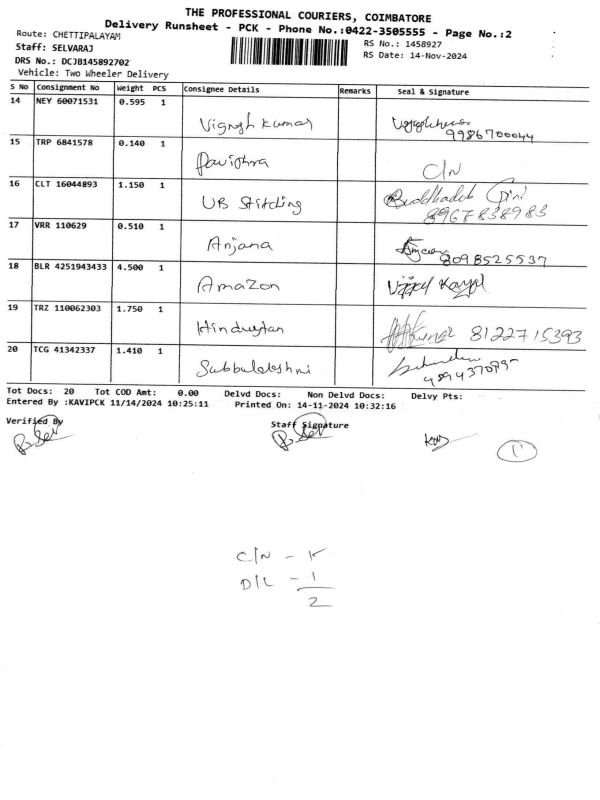 THE PROFESSIONAL COURIERS, COIMBATORE
Delivery Runsheet - PCK - Phone No.:0422-3505555 - Page No.:2
Route: CHETTIPALAYAM
RS No.: 1458927
Staff: SELVARAJ
RS Date: 14-Nov-2024
DRS No.: DCJB145892702
Vehicle: Two Wheeler Delivery
S No Consignment No Weight PCS Consignee Details Remarks Seal & Signature
14 NEY 60071531 0.595 1
Vignesh kumar
9986700044
15 TRP 6841578 0.140 1
Pavithra C/N
16 CLT 16044893 1.150 1
UB Stitding Buddhadeb Gini
8967838983
17 VRR 110629 0.510 1
Anjana
8098525537
18 BLR 4251943433 4.500 1
Amazon
19 TRZ 110062303 1.750 1
Hindustan 8122715393
20 TCG 41342337 1.410 1
Subbulakshmi
Tot Docs: 20 Tot COD Amt: 0.00 Delvd Docs: Non Delvd Docs: Delvy Pts:
Entered By :KAVIPCK 11/14/2024 10:25:11 Printed On: 14-11-2024 10:32:16
Verified By Staff Signature
C/N - 1
D/L - 1
2